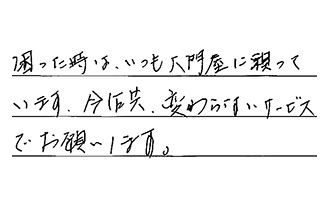 困った時は、いつも大門屋に頼って
います。今后共、変わらないサービス
でお願いします。